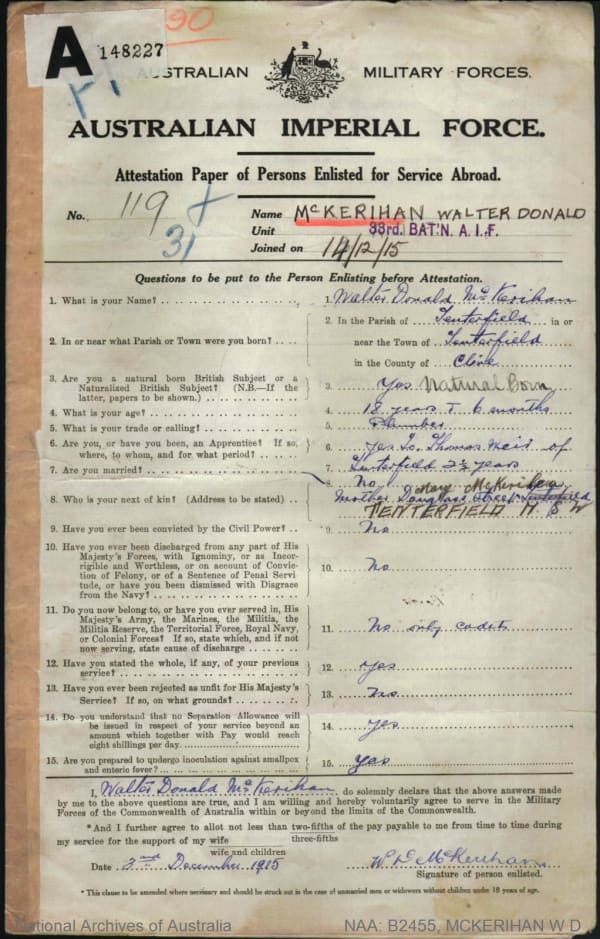 90
A 148227
AUSTRALIAN MILITARY FORCES.
AUSTRALIAN IMPERIAL FORCE.
Attestation Paper of Persons Enlisted for Service Abroad.
No. 119 Name McKERIHAN WALTER DONALD
31 Unit 33rd. BAT'N. A.I.F.
Joined on 14/12/15
Questions to be put to the Person Enlisting before Attestation.
1. What is your Name? 1. Walter Donald McKerihan
2. In or near what Parish or Town were you born? 2. In the Parish of Tenterfield in or
near the Town of Tenterfield
in the County of Clive
3. Are you a natural born British Subject or a
Naturalized British Subject? (N.B.—If the
latter, papers to be shown.) 3. Yes Natural Born
4. What is your age? 4. 18 years & 6 months
5. What is your trade or calling? 5. Plumber
6. Are you, or have you been, an Apprentice? If so,
where, to whom, and for what period? 6. Yes To Thomas Weir of
Tenterfield 2½ years
7. Are you married? 7. No
8. Who is your next of kin? (Address to be stated) 8. Mother Mary McKerihan
Douglas Street Tenterfield
TENTERFIELD N S W
9. Have you ever been convicted by the Civil Power? 9. No
10. Have you ever been discharged from any part of His
Majesty's Forces, with Ignominy, or as Incor-
rigible and Worthless, or on account of Convic-
tion of Felony, or of a Sentence of Penal Servi
tude, or have you been dismissed with Disgrace
from the Navy? 10. No
11. Do you now belong to, or have you ever served in, His
Majesty's Army, the Marines, the Militia, the
Militia Reserve, the Territorial Force, Royal Navy,
or Colonial Forces? If so, state which, and if not
now serving, state cause of discharge 11. No only cadets
12. Have you stated the whole, if any, of your previous
service? 12. Yes
13. Have you ever been rejected as unfit for His Majesty's
Service? If so, on what grounds? 13. No
14. Do you understand that no Separation Allowance will
be issued in respect of your service beyond an
amount which together with Pay would reach
eight shillings per day. 14. Yes
15. Are you prepared to undergo inoculation against smallpox
and enteric fever? 15. Yes
I, Walter Donald McKerihan, do solemnly declare that the above answers made
by me to the above questions are true, and I am willing and hereby voluntarily agree to serve in the Military
Forces of the Commonwealth of Australia within or beyond the limits of the Commonwealth.
*And I further agree to allot not less than two-fifths of the pay payable to me from time to time during
three-fifths
my service for the support of my wife
wife and children
Date 3rd December 1915 W D McKerihan
Signature of person enlisted.
*This clause to be amended where necessary and should be struck out in the case of unmarried men or widowers without children under 18 years of age.
National Archives of Australia NAA: B2455, MCKERIHAN W D